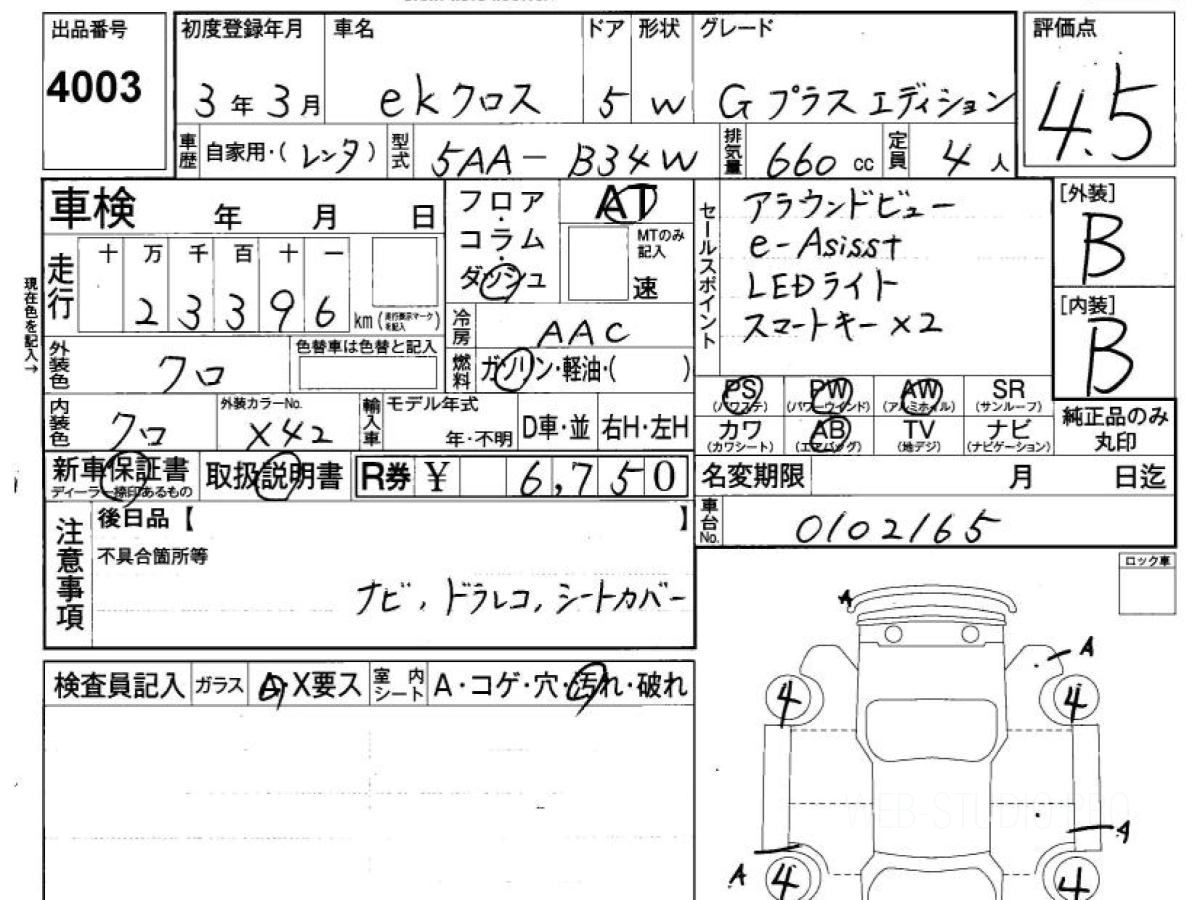 出品番号 初度登録年月 車名 ドア 形状 グレード 評価点
4003 3年3月 ekクロス 5 W Gプラスエディション 4.5
車歴 自家用・(レンタ) 型式 5AA-B34W 排気量 660cc 定員 4人
車検 年 月 日
フロア・コラム・ダッシュ AT MTのみ記入 速
セールスポイント
アラウンドビュー
e-Asisst
LEDライト
スマートキー×2
[外装]
B
[内装]
B
現在色を記入→
走行 十万千百十一
23396 km (走行表示マークを記入)
冷房 AAC
外装色 クロ 色替車は色替と記入
燃料 ガソリン・軽油・( )
PS (パワステ) PW (パワーウインド) AW (アルミホイル) SR (サンルーフ)
カワ (カワシート) AB (エアバッグ) TV (地デジ) ナビ (ナビゲーション)
純正品のみ丸印
内装色 クロ 外装カラーNo. X42 輸入車 モデル年式 年・不明 D車・並 右H・左H
新車保証書 ディーラー捺印あるもの 取扱説明書 R券 ¥ 6,750
名変期限 月 日迄
車台No. 0102165
注意事項 後日品【 】
不具合箇所等
ナビ,ドラレコ,シートカバー
ロック車
検査員記入 ガラス A・X要ス 室内シート A・コゲ・穴・汚れ・破れ
A
A
4 4
WEB-STUDIO PRO
A
A 4 4